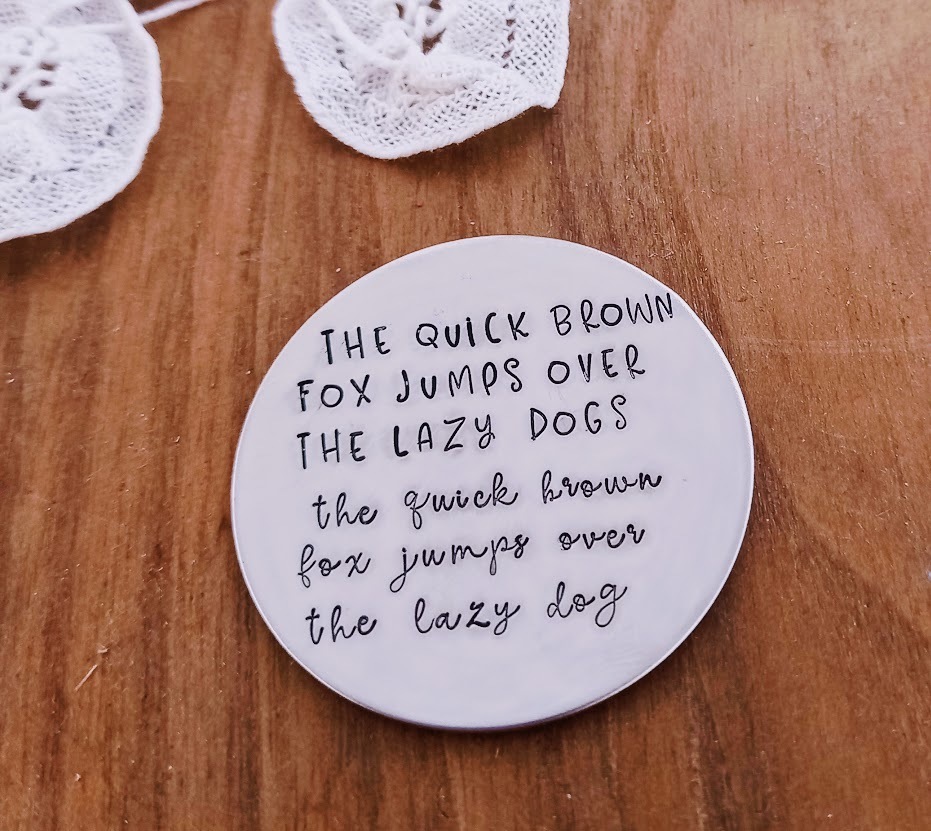 THE QUiCK BROWN
FOX JUMPS OVER
THE LAZY DOGS
the quick brown
fox jumps over
the lazy dog